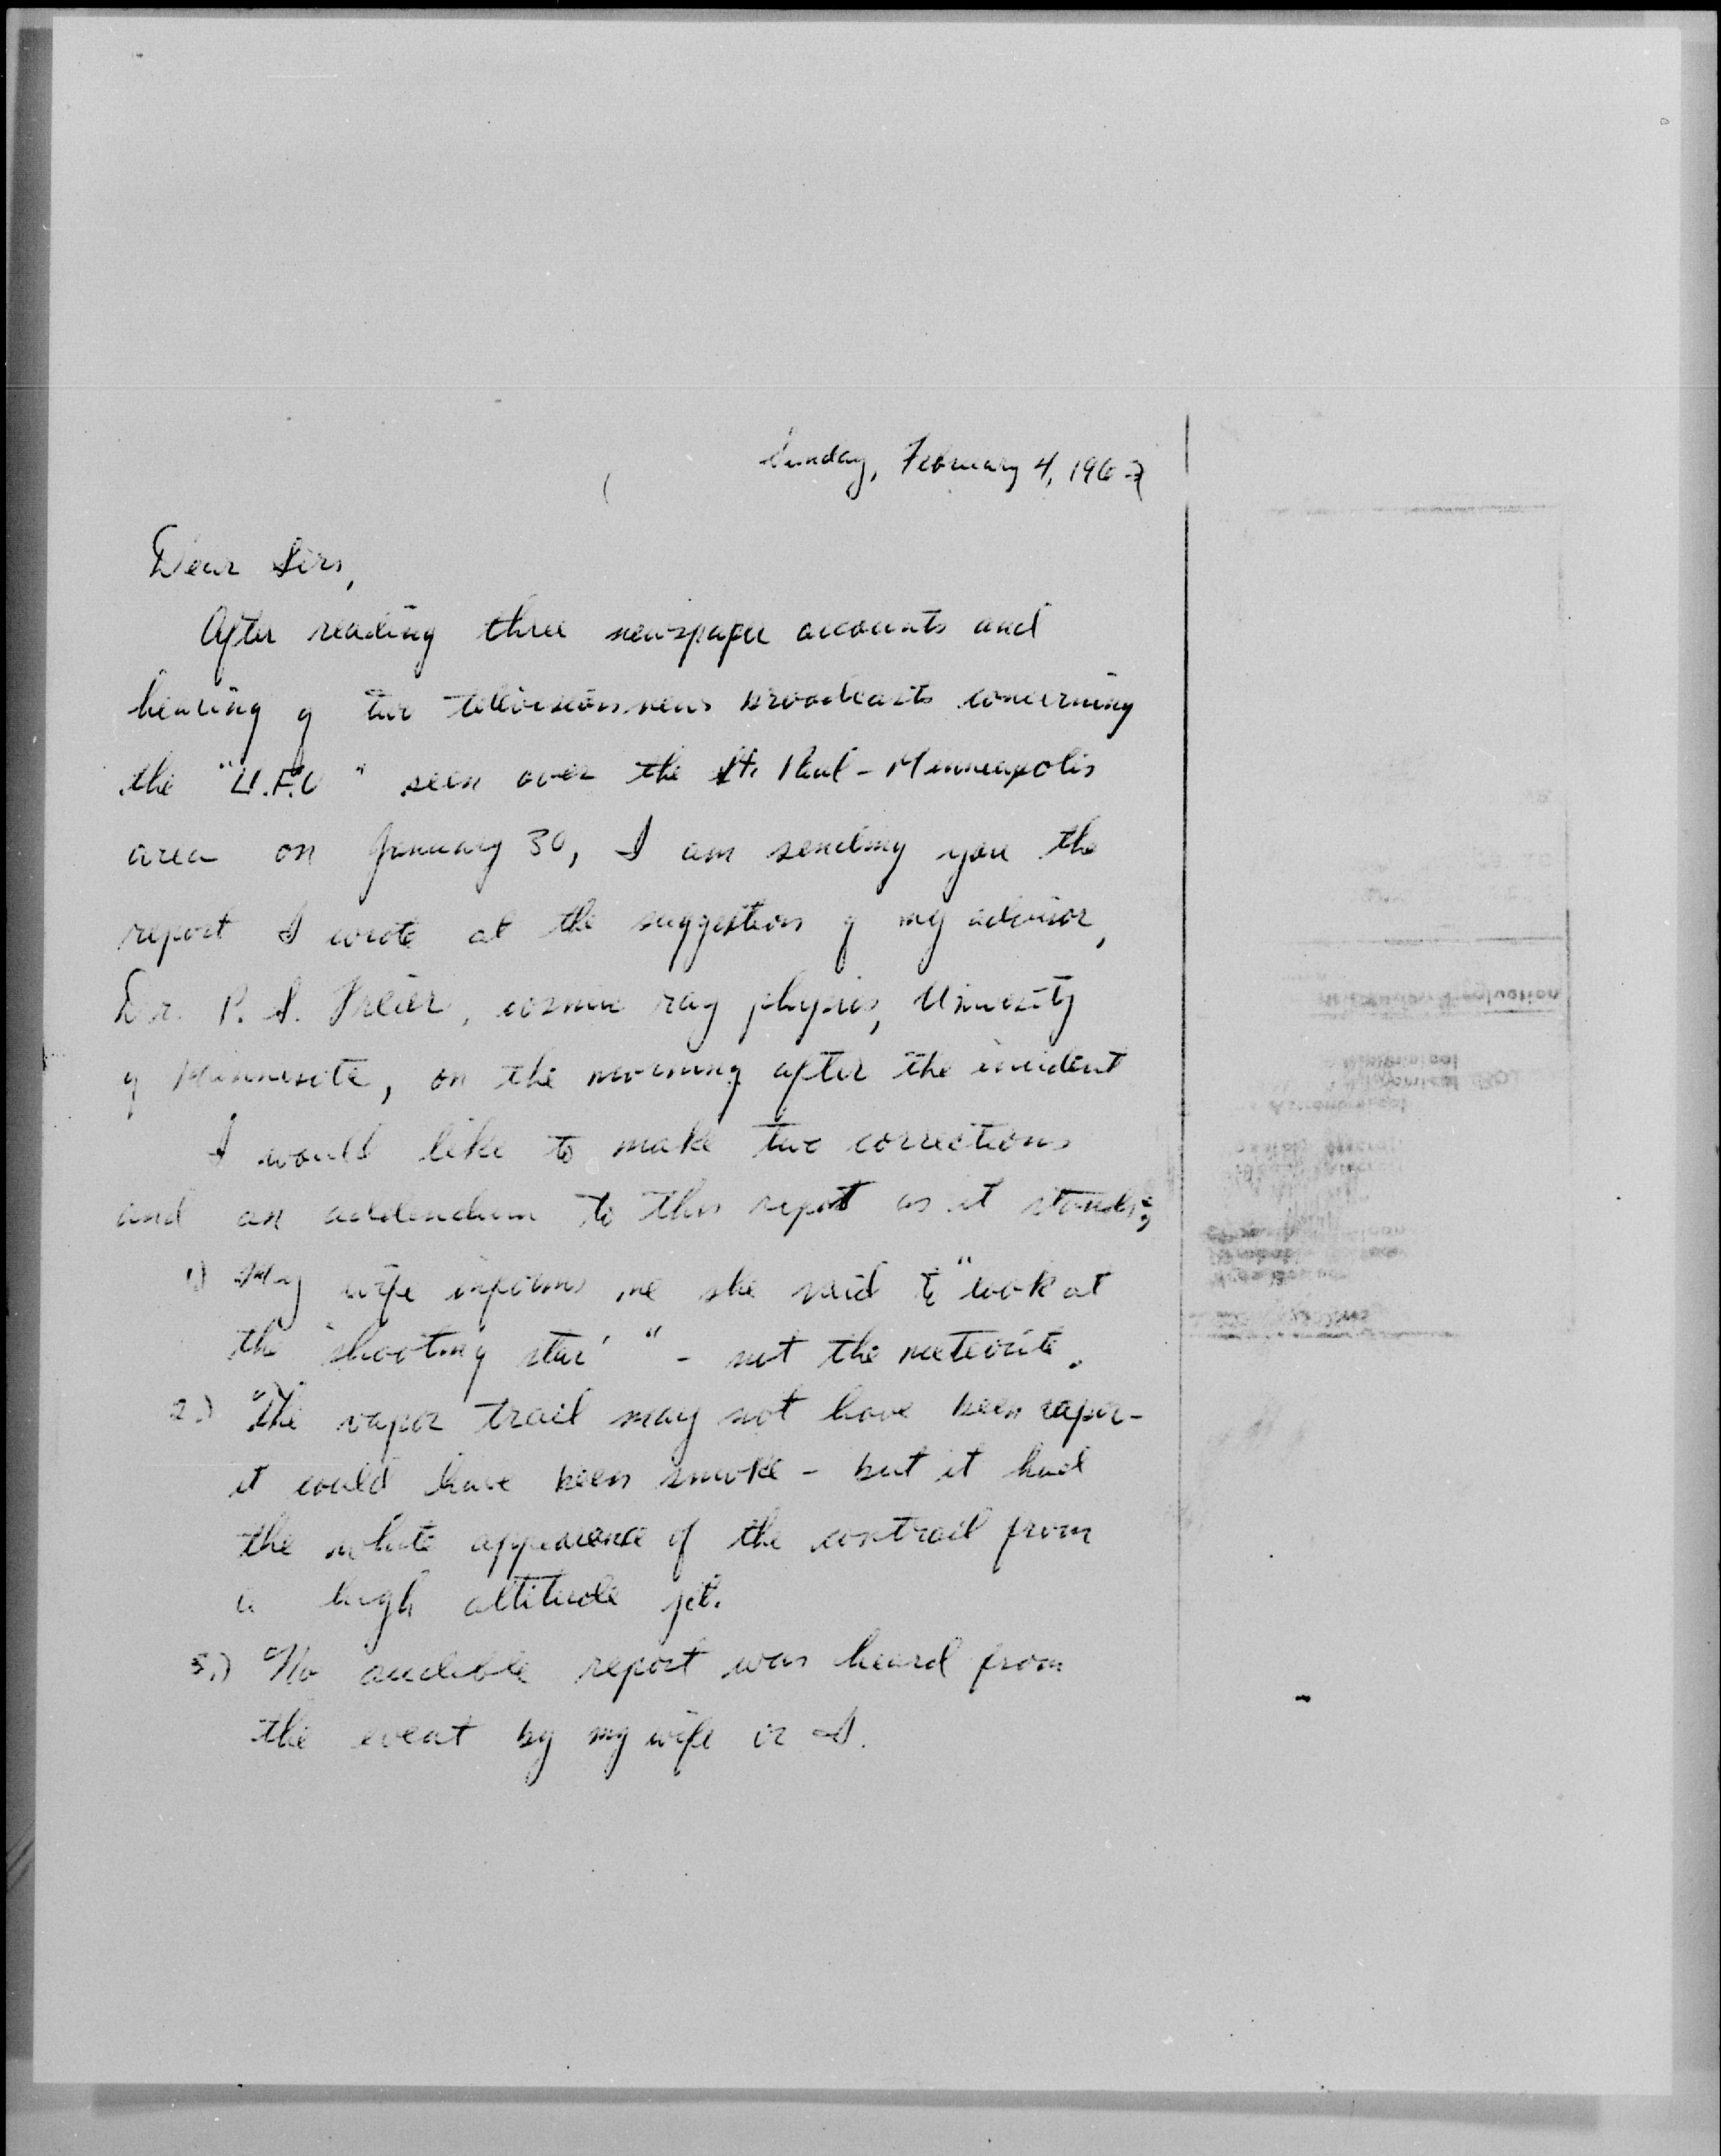 Sunday, February 4, 196
Dear Sirs,
After reading three newspaper accounts and
hearing of two television news broadcasts concerning
the "U.F.O" seen over the St. Paul - Minneapolis
area on January 30, I am sending you the
report I wrote at the suggestion of my advisor,
Dr. P. S. Freier, cosmic ray physics, University
of Minnesota, on the morning after the incident
I would like to make two corrections
and an addendum to this report as it stands;
1) My wife informs me she said to "look at
the 'shooting star' " - not the meteorite.
2.) The vapor trail may not have been vapor -
it could have been smoke - but it had
the white appearance of the contrail from
a high altitude jet.
3.) No audible report was heard from
the event by my wife or I.